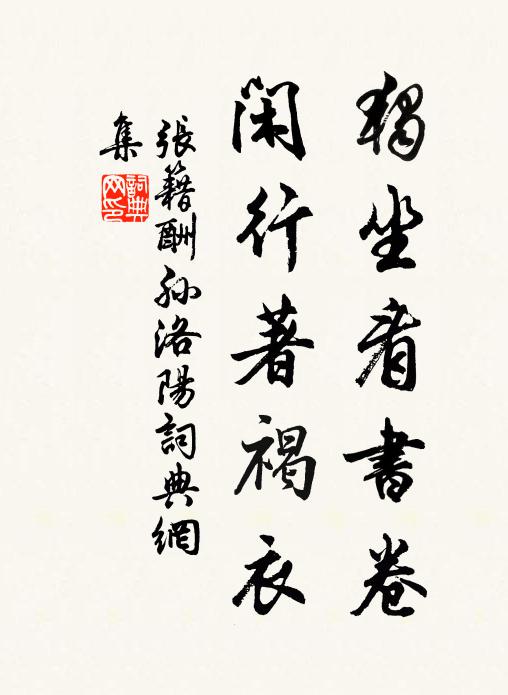 獨坐看書卷
閑行著褐衣
張籍酬孙洛陽詞典網
集
詞典
网印